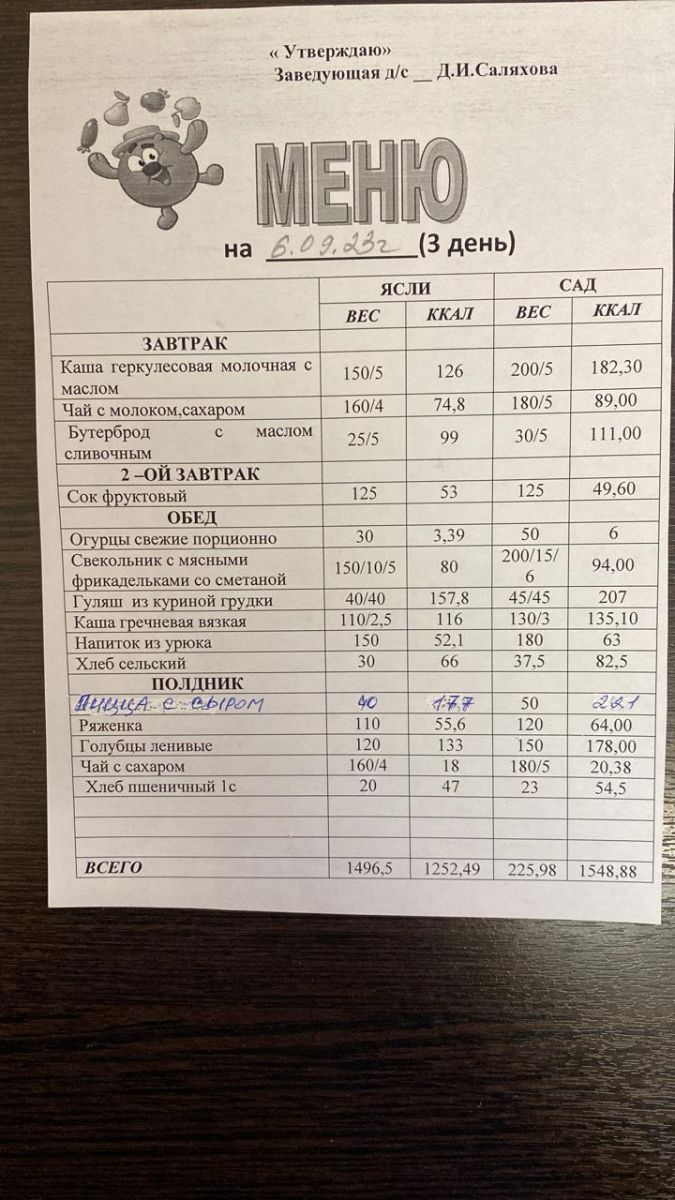 « Утверждаю»
Заведующая д/с __ Д.И.Саляхова
МЕНЮ
на 6.09.23г (3 день)
ЯСЛИ САД
ВЕС ККАЛ ВЕС ККАЛ
ЗАВТРАК
Каша геркулесовая молочная с маслом 150/5 126 200/5 182,30
Чай с молоком,сахаром 160/4 74,8 180/5 89,00
Бутерброд с маслом сливочным 25/5 99 30/5 111,00
2 –ОЙ ЗАВТРАК
Сок фруктовый 125 53 125 49,60
ОБЕД
Огурцы свежие порционно 30 3,39 50 6
Свекольник с мясными фрикадельками со сметаной 150/10/5 80 200/15/6 94,00
Гуляш из куриной грудки 40/40 157,8 45/45 207
Каша гречневая вязкая 110/2,5 116 130/3 135,10
Напиток из урюка 150 52,1 180 63
Хлеб сельский 30 66 37,5 82,5
ПОЛДНИК
Пицца с сыром 40 177 50 221
Ряженка 110 55,6 120 64,00
Голубцы ленивые 120 133 150 178,00
Чай с сахаром 160/4 18 180/5 20,38
Хлеб пшеничный 1с 20 47 23 54,5
ВСЕГО 1496,5 1252,49 225,98 1548,88